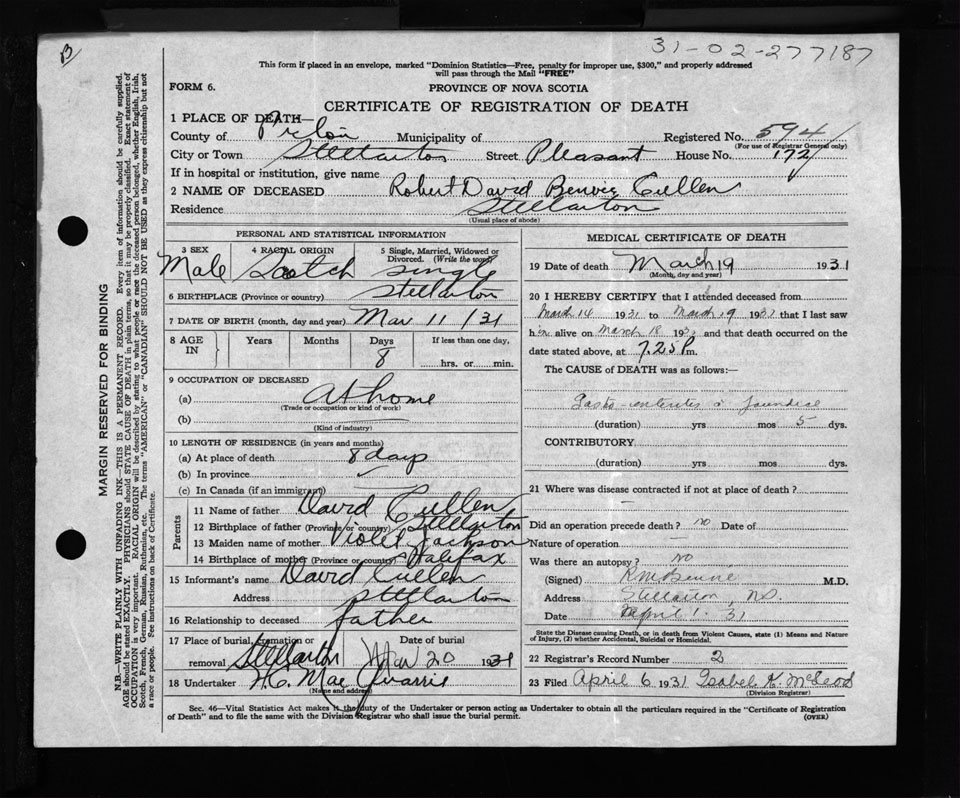 B
31-02-277187
This form if placed in an envelope, marked "Dominion Statistics—Free, penalty for improper use, $300," and properly addressed
will pass through the Mail "FREE"
FORM 6.
PROVINCE OF NOVA SCOTIA
CERTIFICATE OF REGISTRATION OF DEATH
1 PLACE OF DEATH—
County of Pictou Municipality of Registered No. 594
(For use of Registrar General only)
City or Town Stellarton Street Pleasant House No. 172
If in hospital or institution, give name
2 NAME OF DECEASED Robert David Benvie Cullen
Residence Stellarton
(Usual place of abode)
PERSONAL AND STATISTICAL INFORMATION
3 SEX 4 RACIAL ORIGIN 5 Single, Married, Widowed or
Divorced. (Write the word)
Male Scotch single
6 BIRTHPLACE (Province or country) Stellarton
7 DATE OF BIRTH (month, day and year) Mar 11/31
8 AGE IN Years Months Days If less than one day,
8 hrs. or min.
9 OCCUPATION OF DECEASED
(a) At home
(Trade or occupation or kind of work)
(b)
(Kind of industry)
10 LENGTH OF RESIDENCE (in years and months)
(a) At place of death 8 days
(b) In province ✓
(c) In Canada (if an immigrant)
Parents
11 Name of father David Cullen
12 Birthplace of father (Province or country) Stellarton
13 Maiden name of mother Violet Jackson
14 Birthplace of mother (Province or country) Halifax
15 Informant's name David Cullen
Address Stellarton
16 Relationship to deceased father
17 Place of burial, cremation or Date of burial
removal Stellarton Mar 20 1931
18 Undertaker H.C. MacQuarrie
(Name and address)
MEDICAL CERTIFICATE OF DEATH
19 Date of death March 19 1931
(Month, day and year)
20 I HEREBY CERTIFY that I attended deceased from
March 14 1931 to March 19 1931 that I last saw
h im alive on March 18 193 and that death occurred on
date stated above, at 7.25 P.m.
The CAUSE of DEATH was as follows:—
Gastro-enteritis & jaundice
(duration) yrs mos 5 dys.
CONTRIBUTORY
(duration) yrs mos dys.
21 Where was disease contracted if not at place of death?
Did an operation precede death? no Date of
Nature of operation —
Was there an autopsy? no
(Signed) M.D.
Address Stellarton, N.S.
Date April 1. 31
State the Disease causing Death, or in death from Violent Causes, state (1) Means and Nature
of Injury, (2) whether Accidental, Suicidal or Homicidal.
22 Registrar's Record Number 2
23 Filed April 6 1931 Isabel K. McLeod
(Division Registrar)
Sec. 46—Vital Statistics Act makes it the duty of the Undertaker or person acting as Undertaker to obtain all the particulars required in the "Certificate of Registration
of Death" and to file the same with the Division Registrar who shall issue the burial permit. (OVER)
MARGIN RESERVED FOR BINDING
N.B.—WRITE PLAINLY WITH UNFADING INK—THIS IS A PERMANENT RECORD. Every item of information should be carefully supplied.
AGE should be stated EXACTLY. PHYSICIANS should STATE CAUSE OF DEATH in plain terms, so that it may be properly classified. Exact statement of
OCCUPATION is very important. RACIAL ORIGIN will be described by stating to what people or race the deceased person belonged, whether English, Irish,
Scotch, French, German, Russian, Ruthenian, etc. The terms "AMERICAN" or "CANADIAN" SHOULD NOT BE USED as they express citizenship but not
a race or people. See instructions on back of Certificate.